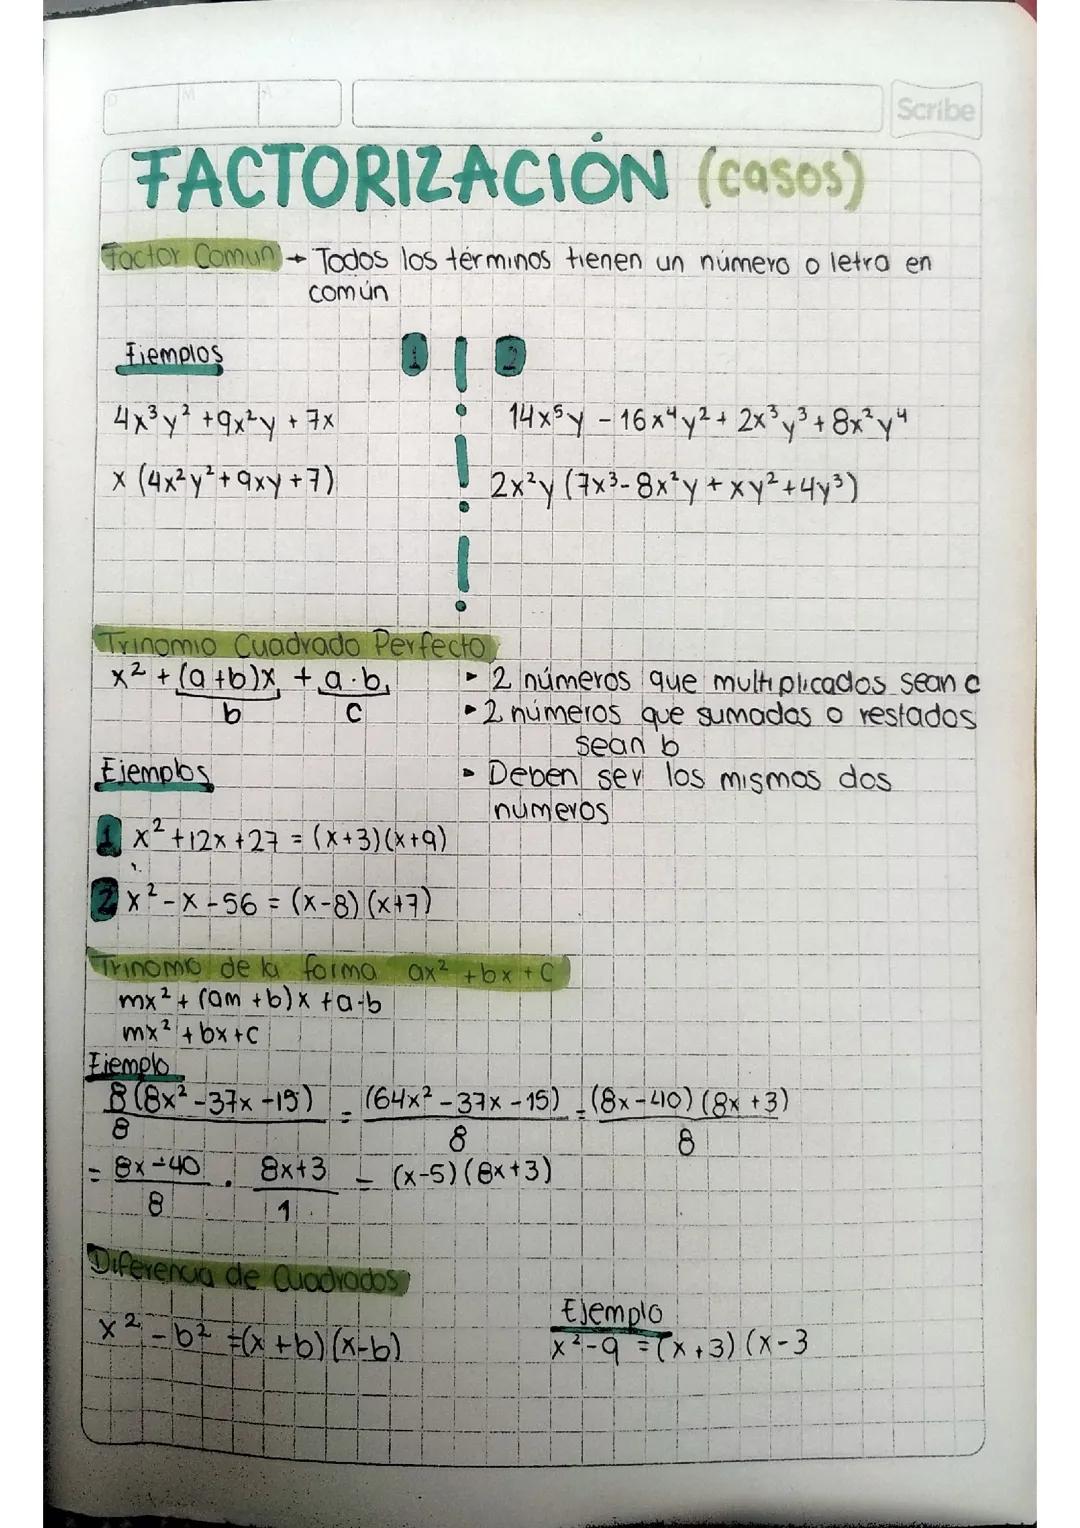 D M A
Scribe
FACTORIZACIÓN (casos)
Factor Comun → Todos los términos tienen un número o letra en
común
Ejemplos 1 2
4x³y² + 9x²y + 7x 14x⁵y - 16x⁴y² + 2x³y³ + 8x²y⁴
x (4x²y² + 9xy + 7) 2x²y (7x³ - 8x²y + xy² + 4y³)
Trinomio Cuadrado Perfecto
x² + (a+b)x + a·b
b c
▸ 2 números que multiplicados sean c
▸ 2 números que sumados o restados
sean b
▸ Deben ser los mismos dos
números
Ejemplos
1 x² + 12x + 27 = (x+3)(x+9)
2 x² - x - 56 = (x-8)(x+7)
Trinomio de la forma ax² + bx + c
mx² + (am + b)x + a·b
mx² + bx + c
Ejemplo
8(8x² - 37x - 15) = (64x² - 37x - 15) = (8x - 40)(8x + 3)
8 8 8
= 8x - 40 · 8x + 3 = (x-5)(8x+3)
8 1
Diferencia de Cuadrados
Ejemplo
x² - b² = (x + b)(x - b) x² - 9 = (x + 3)(x - 3